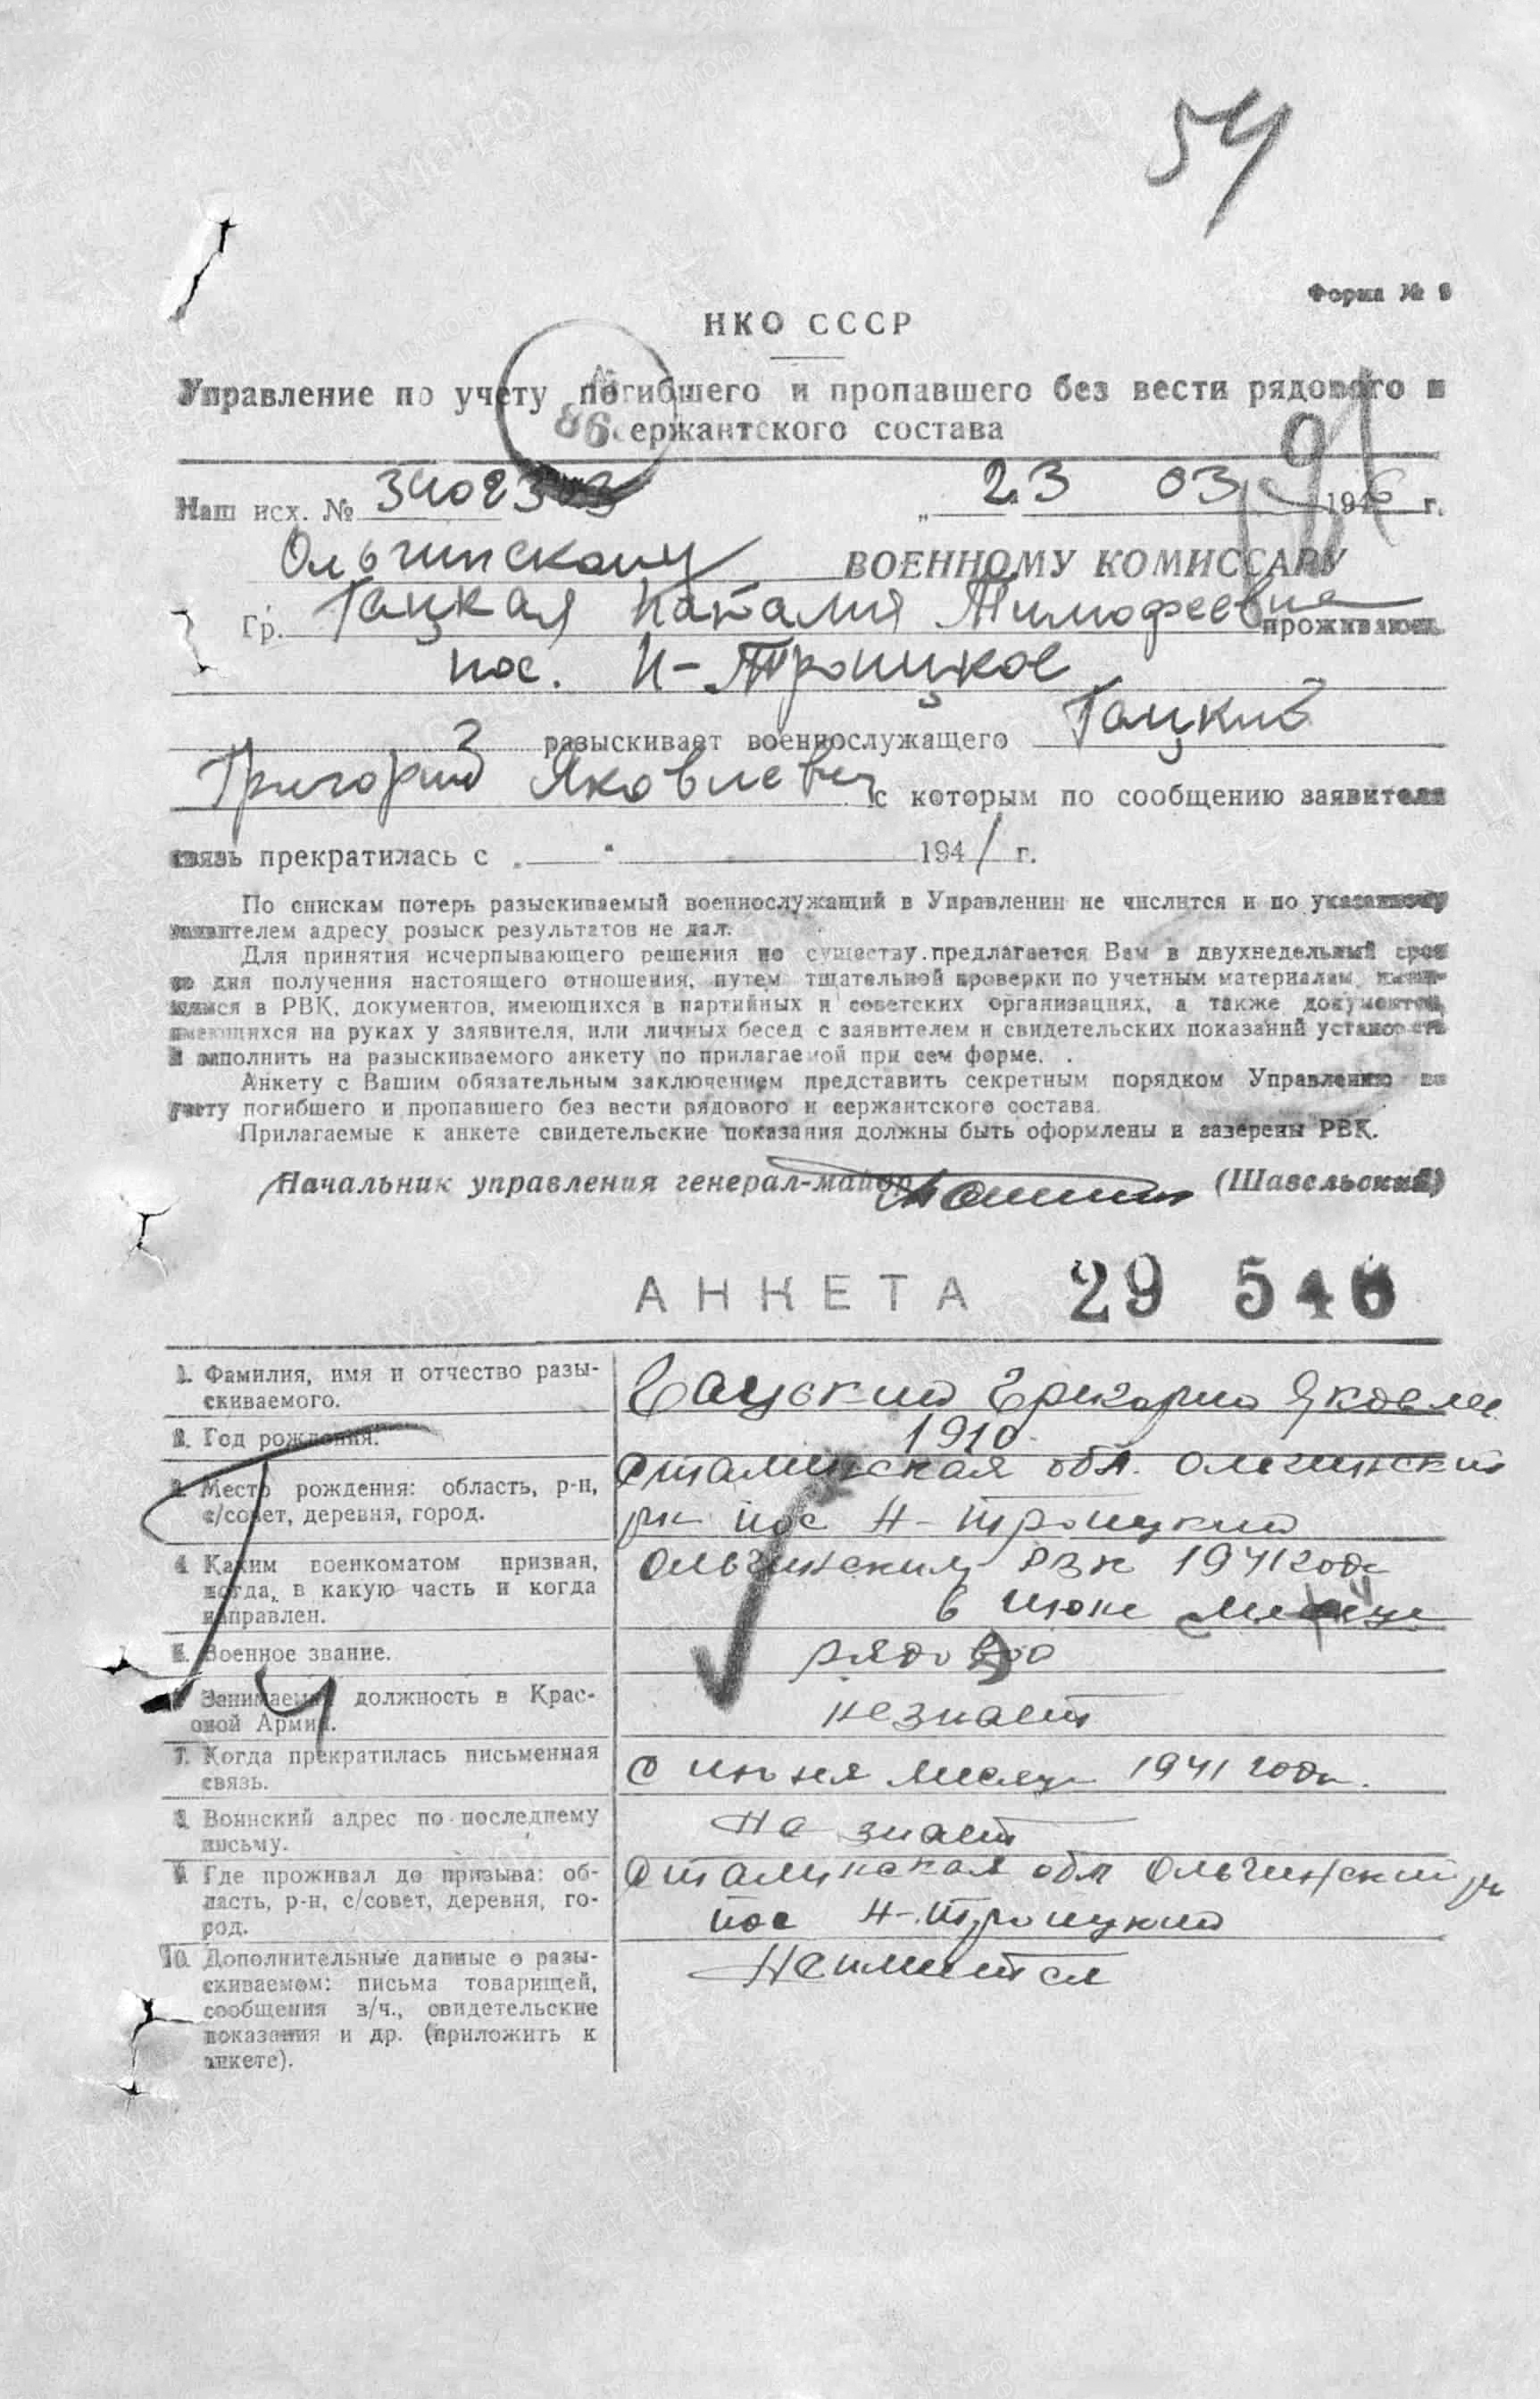 54
Форма № 9
НКО СССР
Управление по учету погибшего и пропавшего без вести рядового и
сержантского состава
86
91
Наш исх. № 34023
„23 03 1946 г.
Ольгинскому ВОЕННОМУ КОМИССАРУ
Гр. Гацкая Наталия Тимофеевна проживающ.
пос. Н-Троицкое
разыскивает военнослужащего Гацкий
Григорий Яковлевич с которым по сообщению заявителя
связь прекратилась с „ “ 1941 г.
По спискам потерь разыскиваемый военнослужащий в Управлении не числится и по указанному
заявителем адресу розыск результатов не дал.
Для принятия исчерпывающего решения по существу предлагается Вам в двухнедельный срок
со дня получения настоящего отношения, путем тщательной проверки по учетным материалам, имею-
щимся в РВК, документов, имеющихся в партийных и советских организациях, а также документов,
имеющихся на руках у заявителя, или личных бесед с заявителем и свидетельских показаний установить
и заполнить на разыскиваемого анкету по прилагаемой при сем форме.
Анкету с Вашим обязательным заключением представить секретным порядком Управлению по
учету погибшего и пропавшего без вести рядового и сержантского состава.
Прилагаемые к анкете свидетельские показания должны быть оформлены и заверены РВК.
Начальник управления генерал-майор (Шавельский)
АНКЕТА 29 546
1. Фамилия, имя и отчество разы-
скиваемого.
Гацький Грикорий Яковлев
2. Год рождения.
1910
3. Место рождения: область, р-н,
с/совет, деревня, город.
Сталинская обл. Ольгинский
рн пос Н-Троицкий
4. Каким военкоматом призван,
когда, в какую часть и когда
направлен.
Ольгинским РВК 1941 года
в июне месяце
5. Военное звание.
рядовой
6. Занимаемая должность в Крас-
оной Армии.
незнает
7. Когда прекратилась письменная
связь.
с июня месяца 1941 года.
8. Воинский адрес по последнему
письму.
Не знает
9. Где проживал до призыва: об-
ласть, р-н, с/совет, деревня, го-
род.
Сталинская обл Ольгинский рн
пос Н-Троицкий
10. Дополнительные данные о разы-
скиваемом: письма товарищей,
сообщения в/ч., свидетельские
показания и др. (приложить к
анкете).
Неимеится